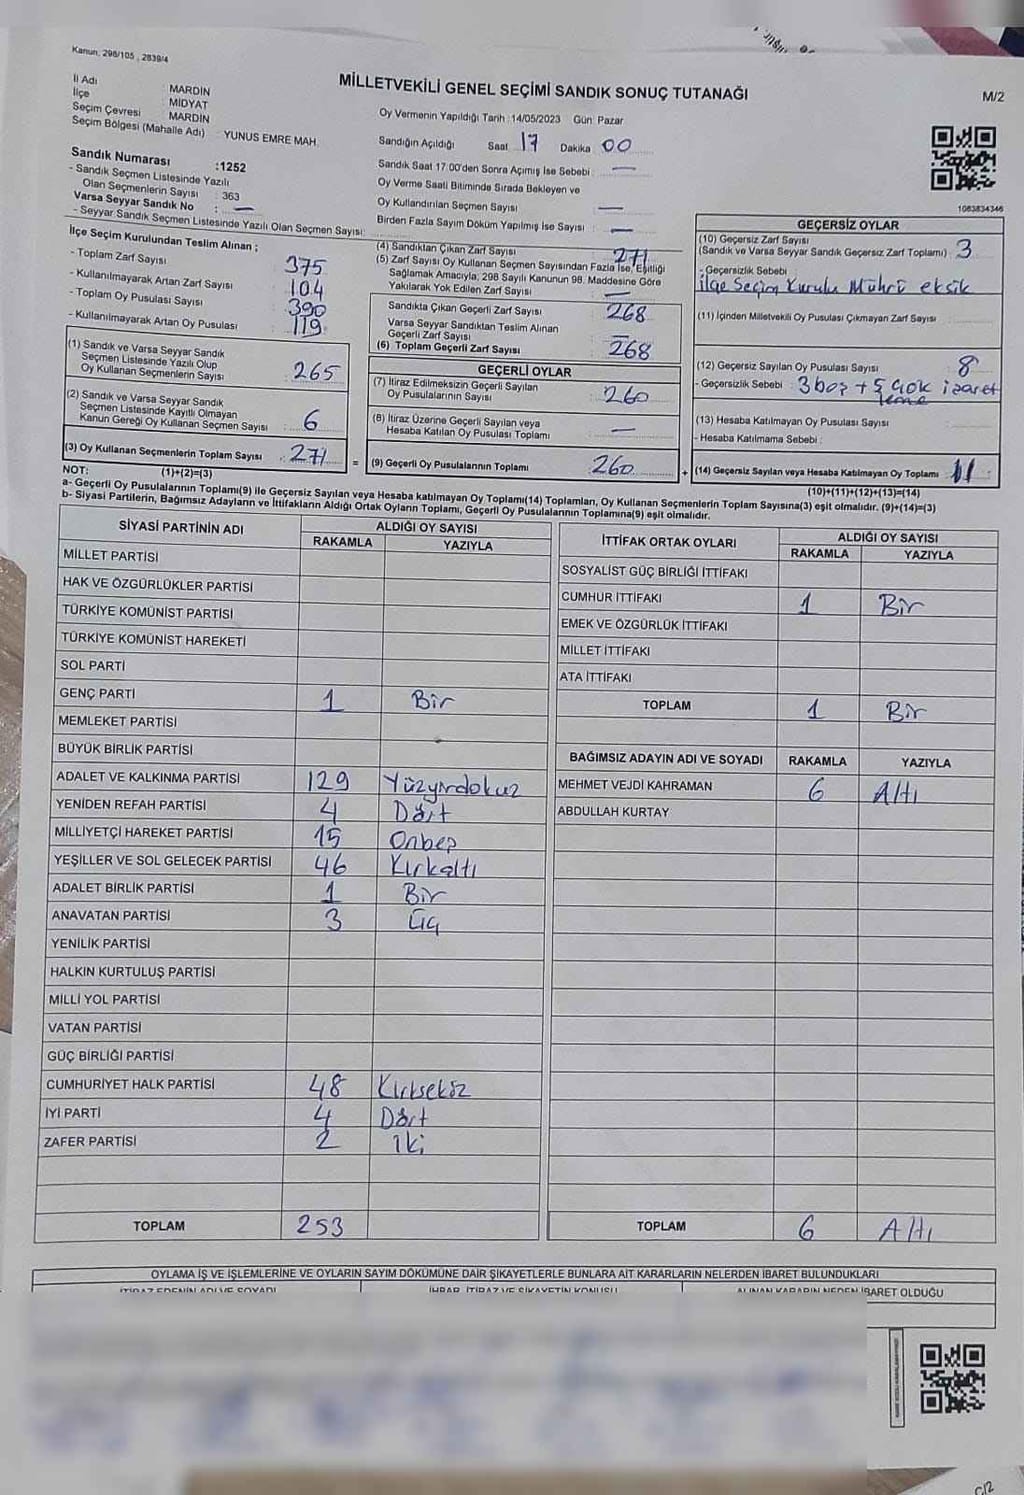 Kanun, 298/105 , 2839/4
MİLLETVEKİLİ GENEL SEÇİMİ SANDIK SONUÇ TUTANAĞI
M/2
İl Adı : MARDİN
İlçe : MİDYAT
Seçim Çevresi : MARDİN
Seçim Bölgesi (Mahalle Adı) : YUNUS EMRE MAH.
Oy Vermenin Yapıldığı Tarih :14/05/2023 Gün: Pazar
Sandığın Açıldığı Saat 17 Dakika 00
Sandık Numarası :1252
- Sandık Seçmen Listesinde Yazılı
Olan Seçmenlerin Sayısı : 363
Varsa Seyyar Sandık No : —
- Seyyar Sandık Seçmen Listesinde Yazılı Olan Seçmen Sayısı:
Sandık Saat 17:00'den Sonra Açımış İse Sebebi : —
Oy Verme Saati Bitiminde Sırada Bekleyen ve
Oy Kullandırılan Seçmen Sayısı : —
Birden Fazla Sayım Döküm Yapılmış İse Sayısı : —
1083834346
İlçe Seçim Kurulundan Teslim Alınan ;
- Toplam Zarf Sayısı : 375
- Kullanılmayarak Artan Zarf Sayısı : 104
- Toplam Oy Pusulası Sayısı : 390
- Kullanılmayarak Artan Oy Pusulası : 119
(1) Sandık ve Varsa Seyyar Sandık
Seçmen Listesinde Yazılı Olup
Oy Kullanan Seçmenlerin Sayısı : 265
(2) Sandık ve Varsa Seyyar Sandık
Seçmen Listesinde Kayıtlı Olmayan
Kanun Gereği Oy Kullanan Seçmen Sayısı : 6
(3) Oy Kullanan Seçmenlerin Toplam Sayısı : 271
(1)+(2)=(3)
(4) Sandıktan Çıkan Zarf Sayısı : 271
(5) Zarf Sayısı Oy Kullanan Seçmen Sayısından Fazla İse, Eşitliği
Sağlamak Amacıyla, 298 Sayılı Kanunun 98. Maddesine Göre
Yakılarak Yok Edilen Zarf Sayısı : —
Sandıkta Çıkan Geçerli Zarf Sayısı : 268
Varsa Seyyar Sandıktan Teslim Alınan
Geçerli Zarf Sayısı : —
(6) Toplam Geçerli Zarf Sayısı : 268
GEÇERLİ OYLAR
(7) İtiraz Edilmeksizin Geçerli Sayılan
Oy Pusulalarının Sayısı : 260
(8) İtiraz Üzerine Geçerli Sayılan veya
Hesaba Katılan Oy Pusulası Toplamı : —
= (9) Geçerli Oy Pusulalarının Toplamı : 260
GEÇERSİZ OYLAR
(10) Geçersiz Zarf Sayısı
(Sandık ve Varsa Seyyar Sandık Geçersiz Zarf Toplamı) : 3
- Geçersizlik Sebebi :
ilçe Seçim Kurulu Mührü eksik
(11) İçinden Milletvekili Oy Pusulası Çıkmayan Zarf Sayısı :
(12) Geçersiz Sayılan Oy Pusulası Sayısı : 8
- Geçersizlik Sebebi : 3 boş + 5 çok işaret
leme
(13) Hesaba Katılmayan Oy Pusulası Sayısı :
- Hesaba Katılmama Sebebi :
+ (14) Geçersiz Sayılan veya Hesaba Katılmayan Oy Toplamı : 11
(10)+(11)+(12)+(13)=(14)
NOT:
a- Geçerli Oy Pusulalarının Toplamı(9) ile Geçersiz Sayılan veya Hesaba katılmayan Oy Toplamı(14) Toplamları, Oy Kullanan Seçmenlerin Toplam Sayısına(3) eşit olmalıdır. (9)+(14)=(3)
b- Siyasi Partilerin, Bağımsız Adayların ve İttifakların Aldığı Ortak Oyların Toplamı, Geçerli Oy Pusulalarının Toplamına(9) eşit olmalıdır.
SİYASİ PARTİNİN ADI
ALDIĞI OY SAYISI
RAKAMLA YAZIYLA
MİLLET PARTİSİ
HAK VE ÖZGÜRLÜKLER PARTİSİ
TÜRKİYE KOMÜNİST PARTİSİ
TÜRKİYE KOMÜNİST HAREKETİ
SOL PARTİ
GENÇ PARTİ 1 Bir
MEMLEKET PARTİSİ
BÜYÜK BİRLİK PARTİSİ
ADALET VE KALKINMA PARTİSİ 129 Yüzyirdokuz
YENİDEN REFAH PARTİSİ 4 Dört
MİLLİYETÇİ HAREKET PARTİSİ 15 Onbeş
YEŞİLLER VE SOL GELECEK PARTİSİ 46 Kırkaltı
ADALET BİRLİK PARTİSİ 1 Bir
ANAVATAN PARTİSİ 3 Üç
YENİLİK PARTİSİ
HALKIN KURTULUŞ PARTİSİ
MİLLİ YOL PARTİSİ
VATAN PARTİSİ
GÜÇ BİRLİĞİ PARTİSİ
CUMHURİYET HALK PARTİSİ 48 Kırksekiz
İYİ PARTİ 4 Dört
ZAFER PARTİSİ 2 iki
TOPLAM 253
İTTİFAK ORTAK OYLARI
ALDIĞI OY SAYISI
RAKAMLA YAZIYLA
SOSYALİST GÜÇ BİRLİĞİ İTTİFAKI
CUMHUR İTTİFAKI 1 Bir
EMEK VE ÖZGÜRLÜK İTTİFAKI
MİLLET İTTİFAKI
ATA İTTİFAKI
TOPLAM 1 Bir
BAĞIMSIZ ADAYIN ADI VE SOYADI RAKAMLA YAZIYLA
MEHMET VEJDİ KAHRAMAN 6 Altı
ABDULLAH KURTAY
TOPLAM 6 Altı
OYLAMA İŞ VE İŞLEMLERİNE VE OYLARIN SAYIM DÖKÜMÜNE DAİR ŞİKAYETLERLE BUNLARA AİT KARARLARIN NELERDEN İBARET BULUNDUKLARI
İTİRAZ EDENİN ADI VE SOYADI
İHBAR, İTİRAZ VE ŞİKAYETİN KONUSU
ALINAN KARARIN NEDEN İBARET OLDUĞU
C/2